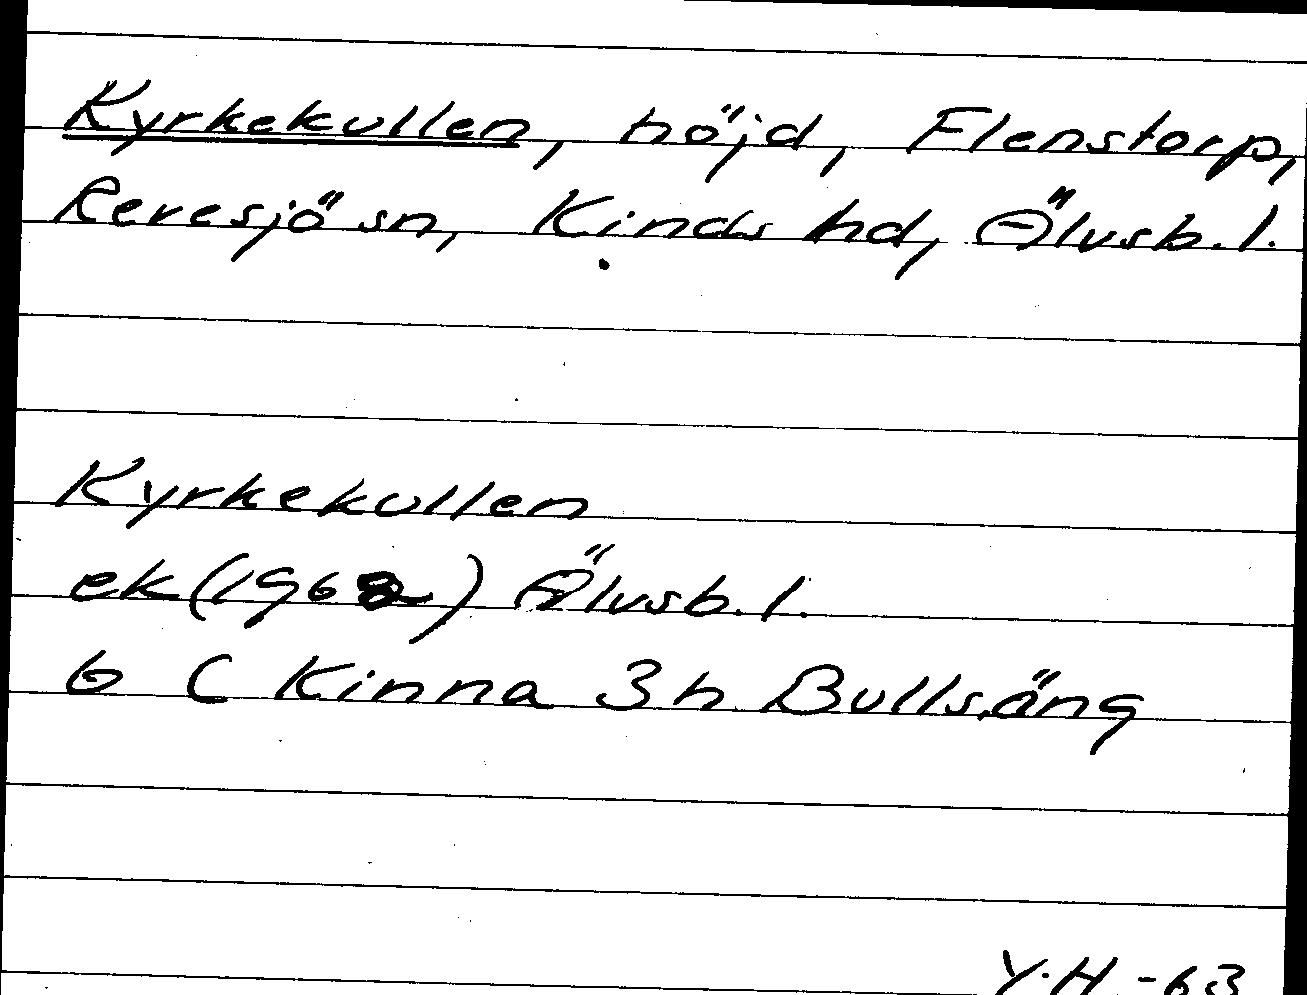 Kyrkekullen, höjd, Flenstorp,
Revesjö sn, Kinds hd, Älvsb. l.
Kyrkekullen
ek (1962) Älvsb. l.
6 C Kinna 3 h Bullsäng
Y.H -63